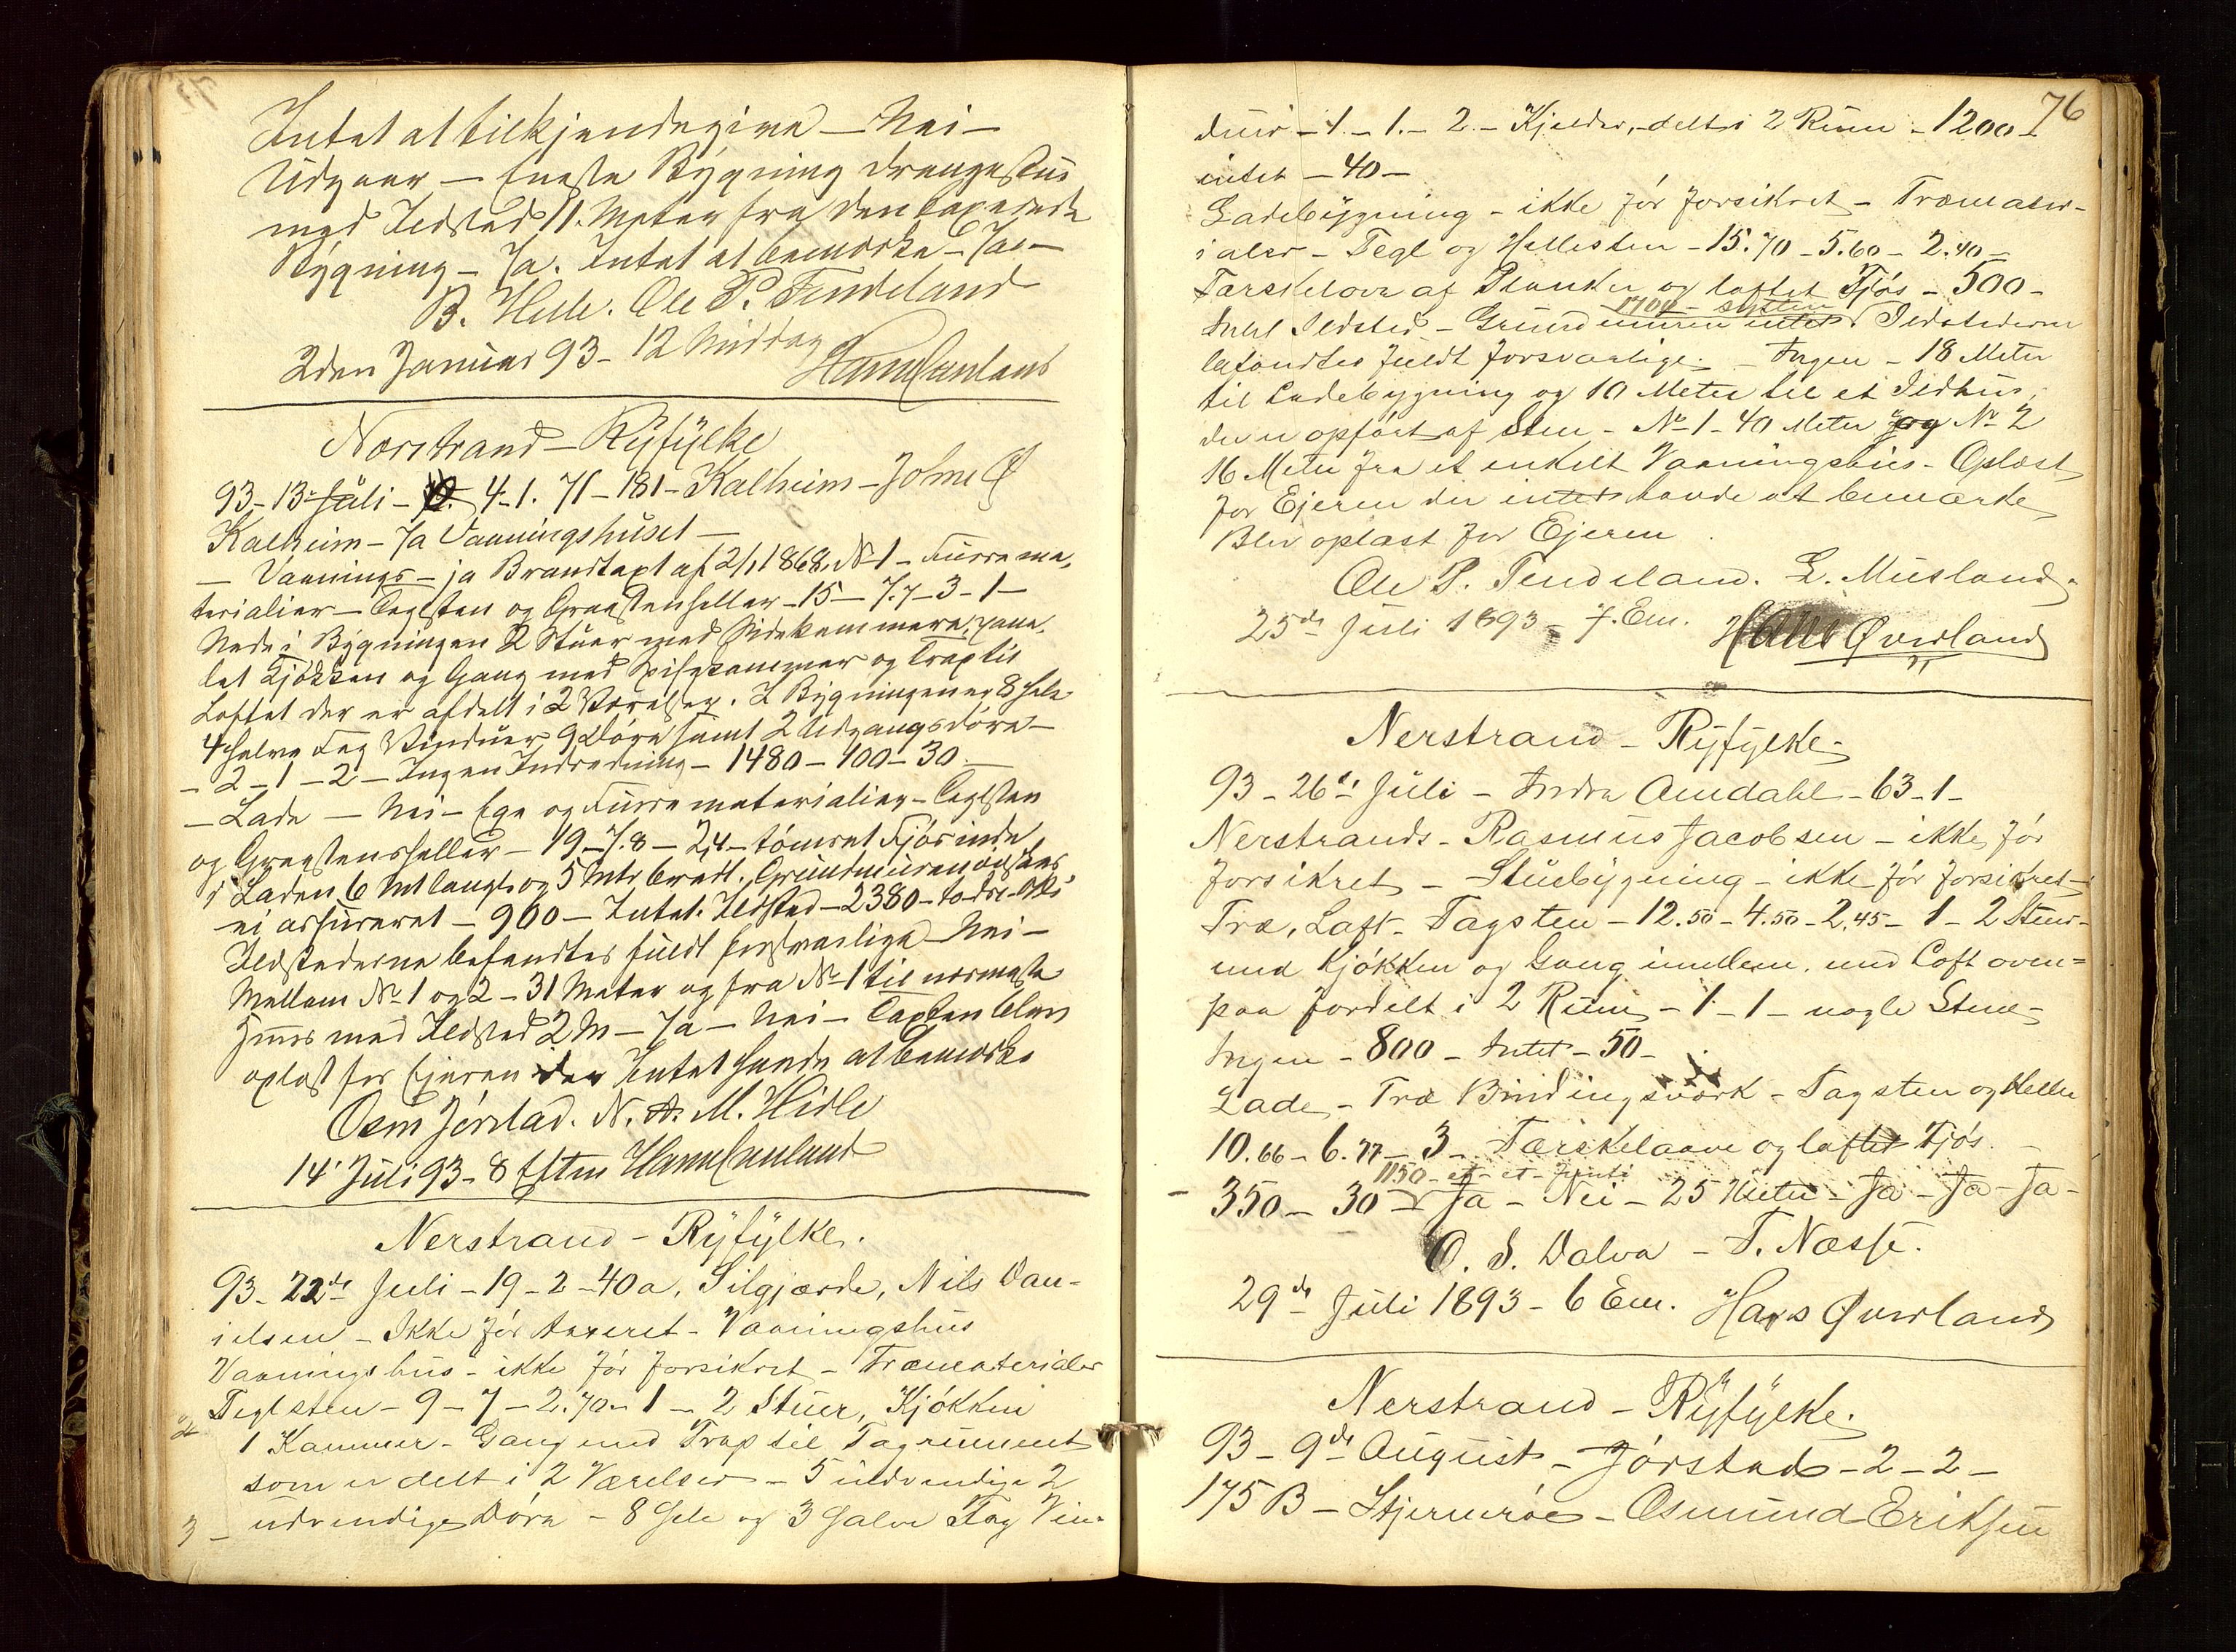 Intet at tilkjendegive – Nei –
Udgaar – Eneste Bygning Drengestue
med Ildsted 11. Meter fra den taxerede
Bygning – Ja. Intet at bemærke – Ja –
B. Helle. Ole P. Tendeland
2den Januar 93 – 12 Middag
Nerstrand – Ryfylke
93 – 13de Juli – 4 – 1. 71 – 181 – Kalheim – Johne
Kalheim – Ja Vaaningshuset –
– Vaanings – ja Brandtaxt af 2/1 1868. No 1 – Furrema-
terialier – Teglsten og Graastensheller – 15 – 7.7 – 3 – 1 –
Nede i Bygningen 2 Stuer med Sidekammere, pane-
let Kjøkken og Gang med Spisekammer og Trap til
Loftet der er afdelt i 2 Værelser. I Bygningen er 8 hele
4 halve Fag Vinduer 9 Døre samt 2 Udgangsdøre –
– 2 – 1 – 2 – Ingen Indredning – 1480 – 100 – 30 –
– Lade – Nei – Ege og Furrematerialier – Teglsten
og Graastensheller – 19 – 7.8 – 2,4 – tømret Fjøs inde
i Laden 6 Mt langt og 5 Mtr bredt. Grundmuren ønskes
ei assureret – 900 – Intet. Ildsted – 2380 – to – tre – otti
Ildstederne befandtes fuldt forsvarlige – Nei –
Mellem No 1 og 2 – 31 Meter og fra No 1 til nærmeste
Huus med Ildsted 2 M – Ja – Nei – Taxten blev
oplæst for Ejeren der Intet havde at bemærke
Osm Jørstad. N. A. M. Hidle
14 Juli 93 – 8 Eftm
Nerstrand – Ryfylke.
93 – 22de Juli – 19 – 2 – 40a, Silgjærde, Nils Dan-
ielsen – Ikke før taxeret – Vaaningshus
Vaaningshus – ikke før forsikret – Træmaterialer
Teglsten – 9 – 7 – 2.70 – 1 – 2 Stuer, Kjøkken
1 Kammer – Gang med Trap til Tagrummet
som er delt i 2 Værelser – 5 indvendige 2
3 – udvendige Døre – 8 hele og 3 halve Fag Vin-
76
duer – 1 – 1. – 2 – Kjelder, delt i 2 Rum – 1200 –
intet – 40 –
Ladebygning – ikke før forsikret – Træmater-
ialer – Tegl og Hellesten – 15.70 – 5.60 – 2.40 –
Tærskelove af Planker og laftet Fjøs – 500 –
1700 – sytten
Intet Ildsted – Grundmuren intet Ildstederne
befandtes fuldt forsvarlige. – Ingen – 18 Meter
til Ladebygning og 10 Meter til et Ildhus,
der er opført af Sten – No 1 – 40 Meter og No 2
16 Meter fra et enkelt Vaaningshus – Oplæst
for Ejeren der intet havde at bemærke
Blev oplæst for Ejeren.
Ole P. Tendeland. L. Musland.
25de Juli 1893 – 7. Em. Hans Øverland
Nerstrand – Ryfylke.
93 – 26de Juli – Indre Amdahl – 63 – 1 –
Nerstrands – Rasmus Jacobsen – ikke før
forsikret – Stuebygning – ikke før forsikret –
Træ, Laft – Tagsten – 12.50 – 4.50 – 2.45 – 1 – 2 Stuer –
med Kjøkken og Gang imellem, med Loft oven-
paa fordelt i 2 Rum – 1 – 1 – nogle Stene
Ingen – 800 – Intet – 50 –
Lade – Træ Bindingsværk – Tagsten og Heller
10.66 – 6.77 – 3 – Tærskelaave og laftet Fjøs. –
1150 – et – et – femti
– 350 – 30 – Ja – Nei – 25 Meter – Ja – Ja – Ja –
O. S. Dalva – T. Næsse.
29de Juli 1893 – 6 Em. Hans Øverland
Nerstrand – Ryfylke.
93 – 9de August – Jørstad – 2 – 2 –
175 B – Stjernerøe – Osmund Eriksen